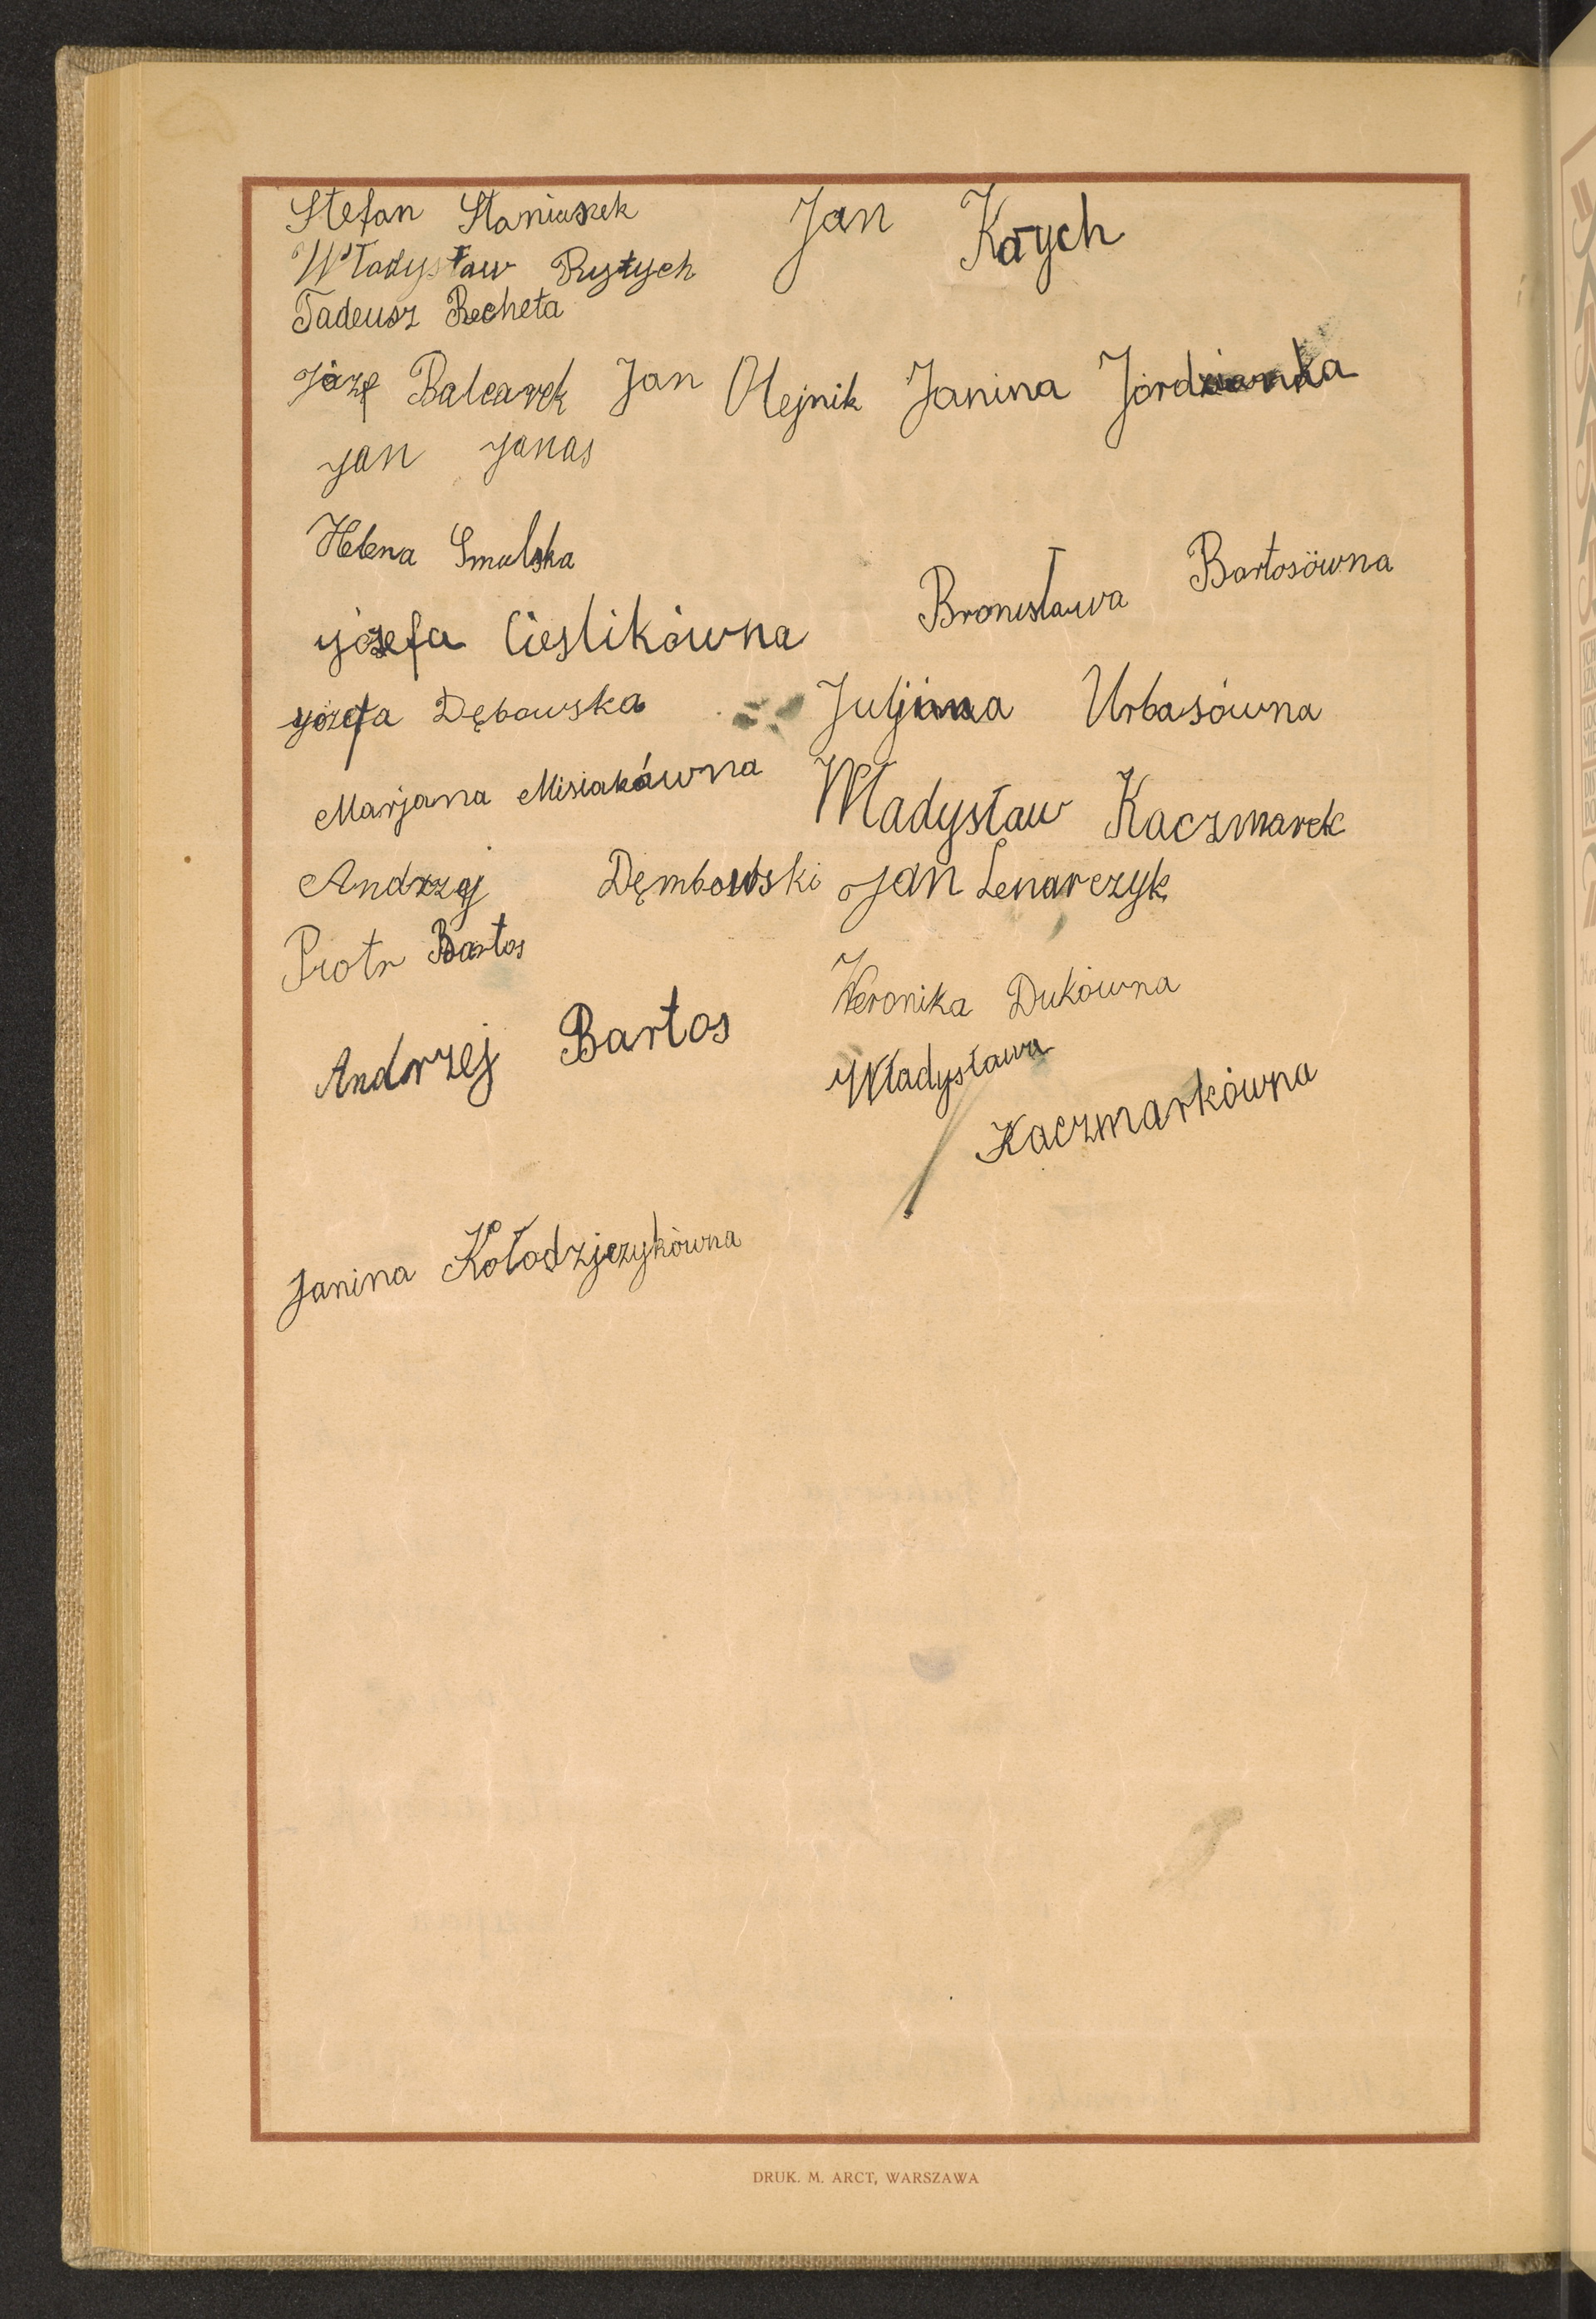 Stefan Staniaszek
Jan Kaych
Władysław Rystych
Tadeusz Recheta
Józef Balcarek Jan Olejnik Janina Jordzianka
Jan Janas
Helena Smulska
Bronisława Bartosówna
Józefa Cieslikówna
Józefa Dębowska
Juljanna Urbasówna
Marjana Misiakówna
Władysław Kaczmarek
Andrzej Dęmbowski
Jan Lenarczyk
Piotr Bartos
Weronika Dukówna
Andrzej Bartos
Władysława
Kaczmarkówna
Janina Kołodzjezykówna
DRUK. M. ARCT, WARSZAWA